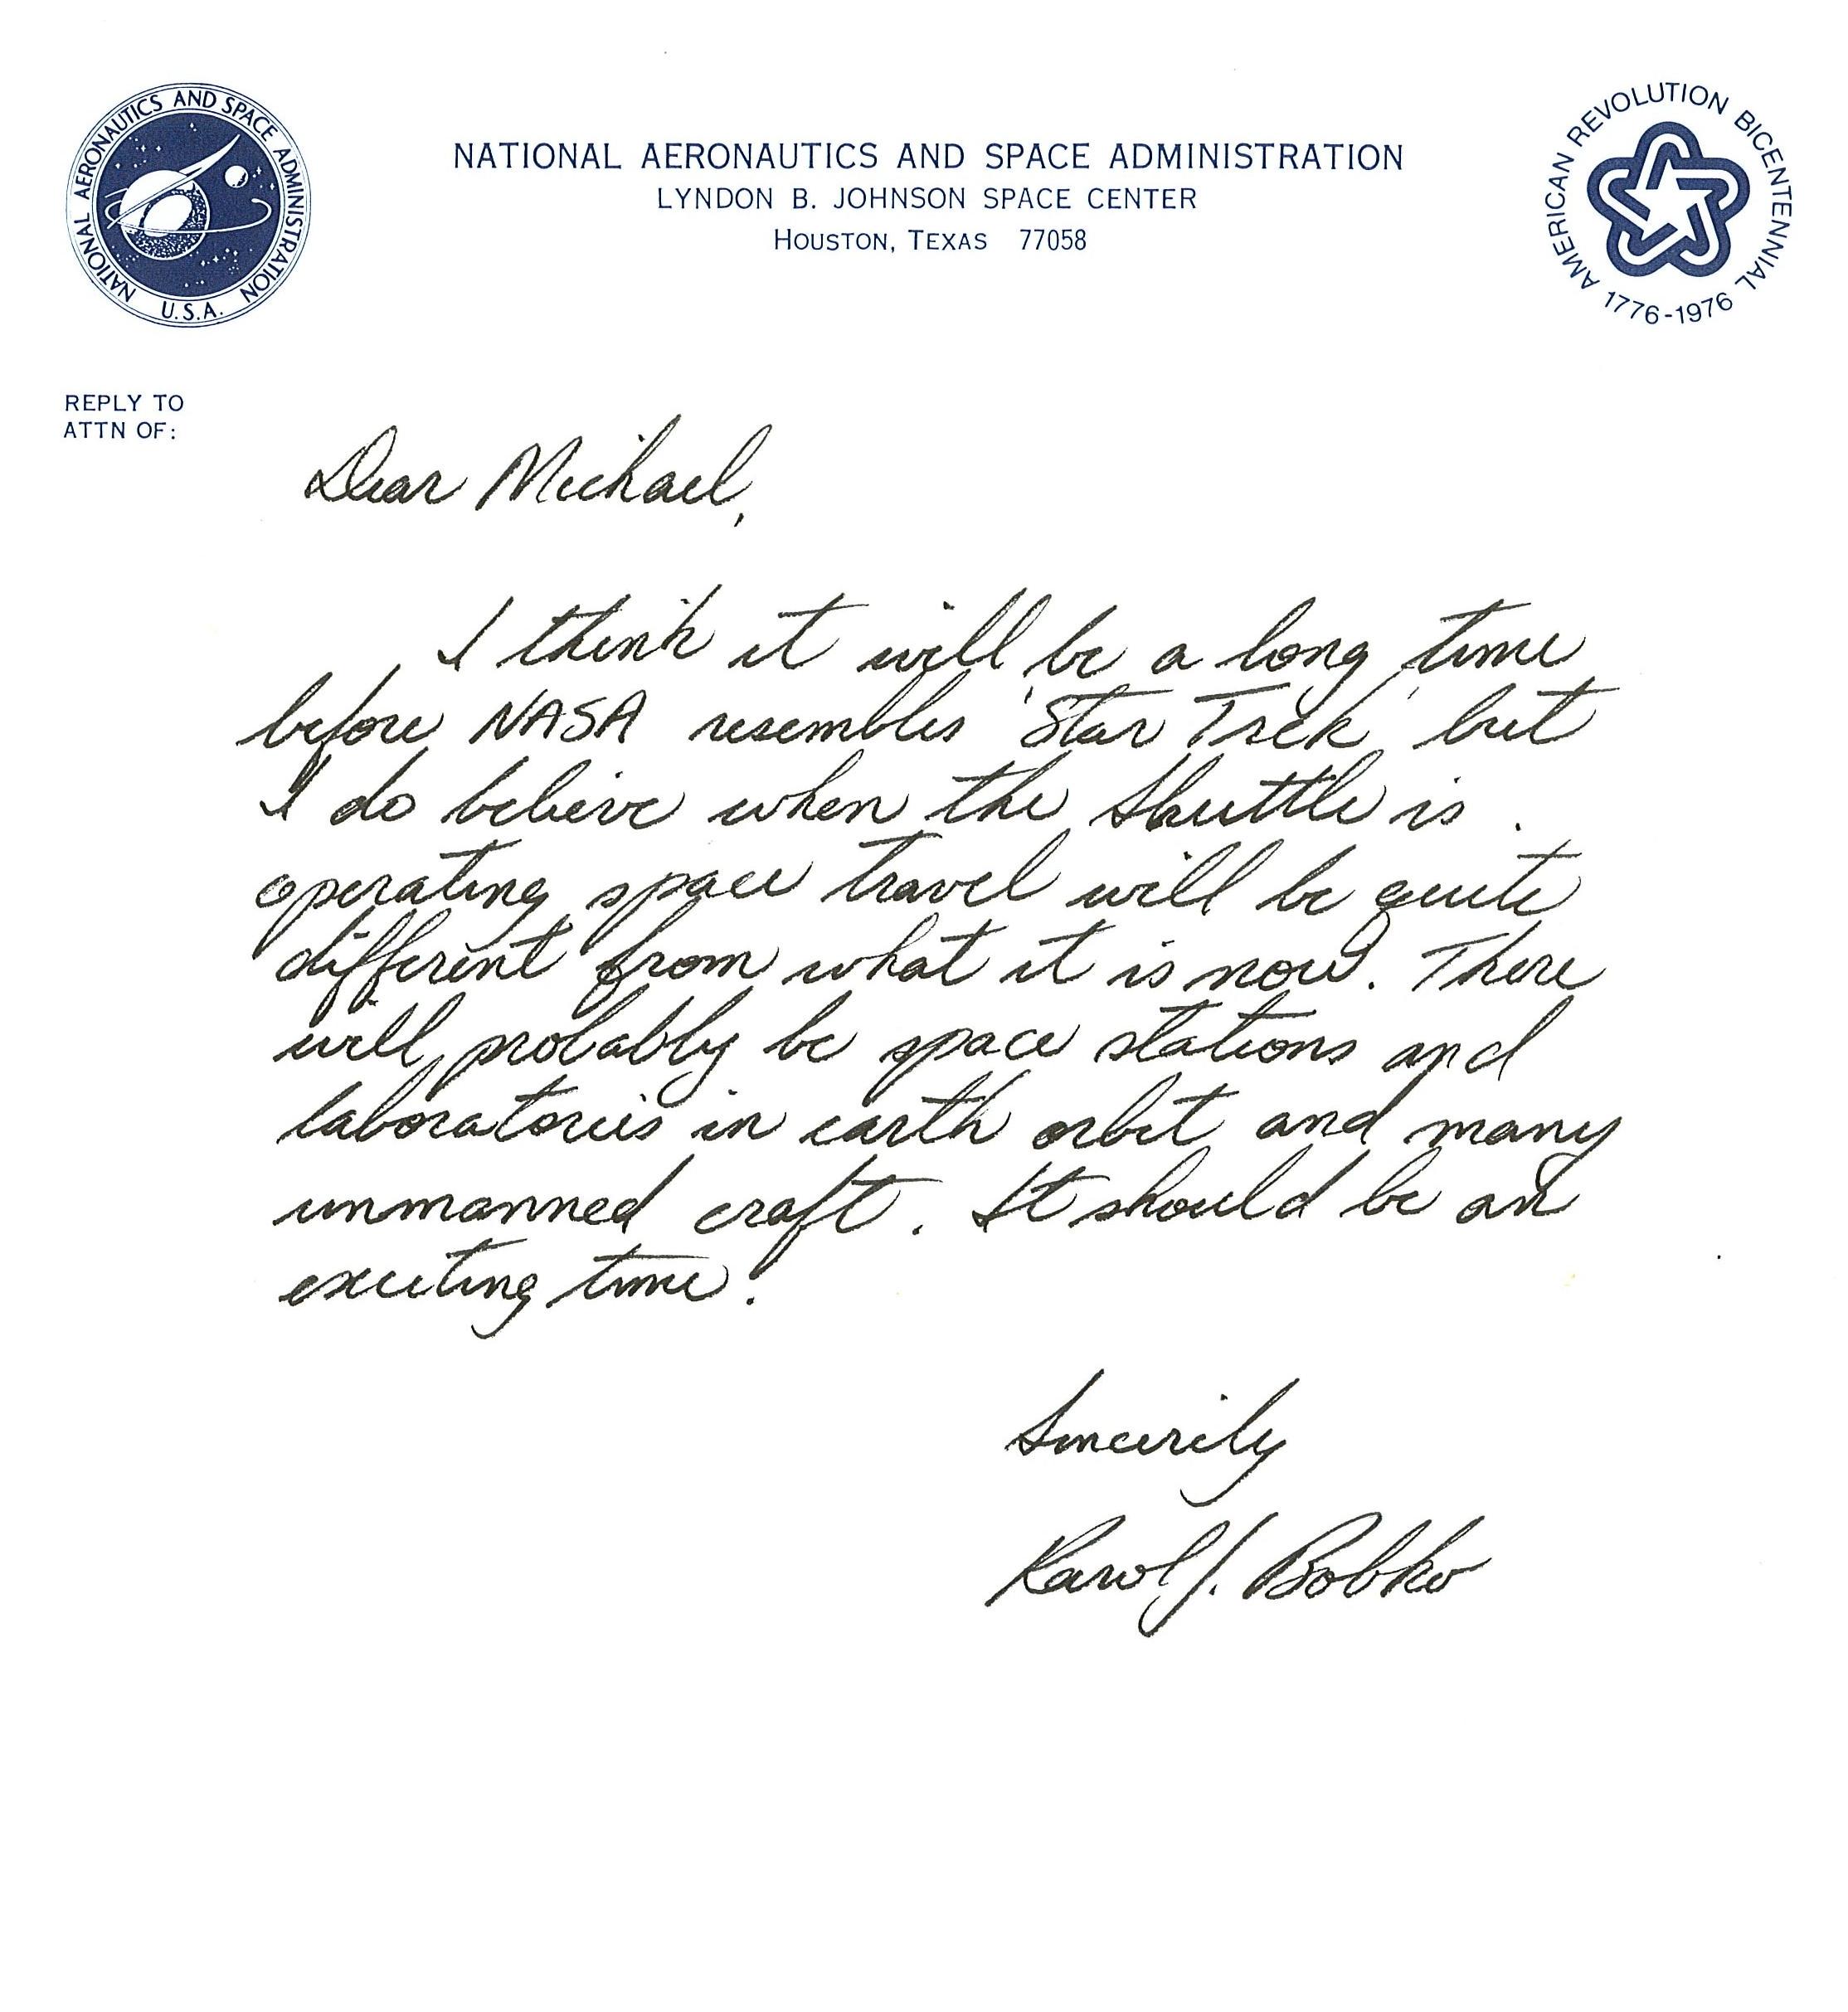 NATIONAL AERONAUTICS AND SPACE ADMINISTRATION
U.S.A.
NATIONAL AERONAUTICS AND SPACE ADMINISTRATION
LYNDON B. JOHNSON SPACE CENTER
HOUSTON, TEXAS 77058
AMERICAN REVOLUTION BICENTENNIAL
1776-1976
REPLY TO
ATTN OF:
Dear Michael,
I think it will be a long time
before NASA resembles 'Star Trek' but
I do believe when the Shuttle is
operating space travel will be quite
different from what it is now. There
will probably be space stations and
laboratories in earth orbit and many
unmanned craft. It should be an
exciting time.
Sincerely
Karol J. Bobko